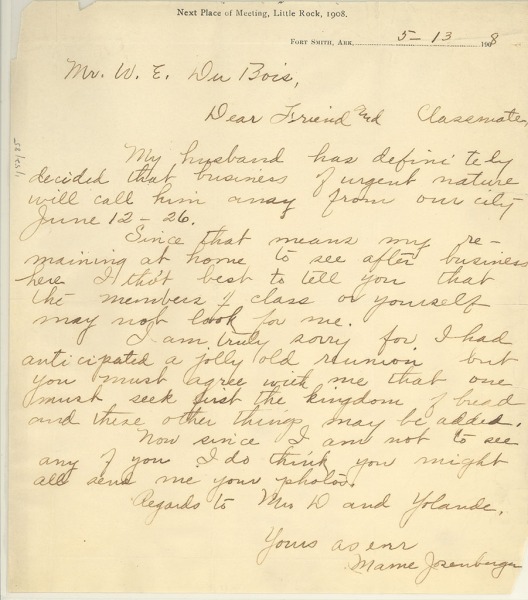 Next Place of Meeting, Little Rock, 1908.
Fort Smith, Ark. 5-13 1908
Mr. W. E. Du Bois,
Dear Friend and Classmate,
My husband has definitely
decided that business of urgent nature
will call him away from our city
June 12-26.
Since that means my re-
maining at home to see after business
here I tho't best to tell you that
the members of class or yourself
may not look for me.
I am truly sorry for I had
anticipated a jolly old reunion but
you must agree with me that one
must seek first the kingdom of bread
and these other things may be added.
Now since I am not to see
any of you I do think you might
all send me your photos.
Regards to Mrs D and Yolande.
Yours as ever
Mame Josenberger